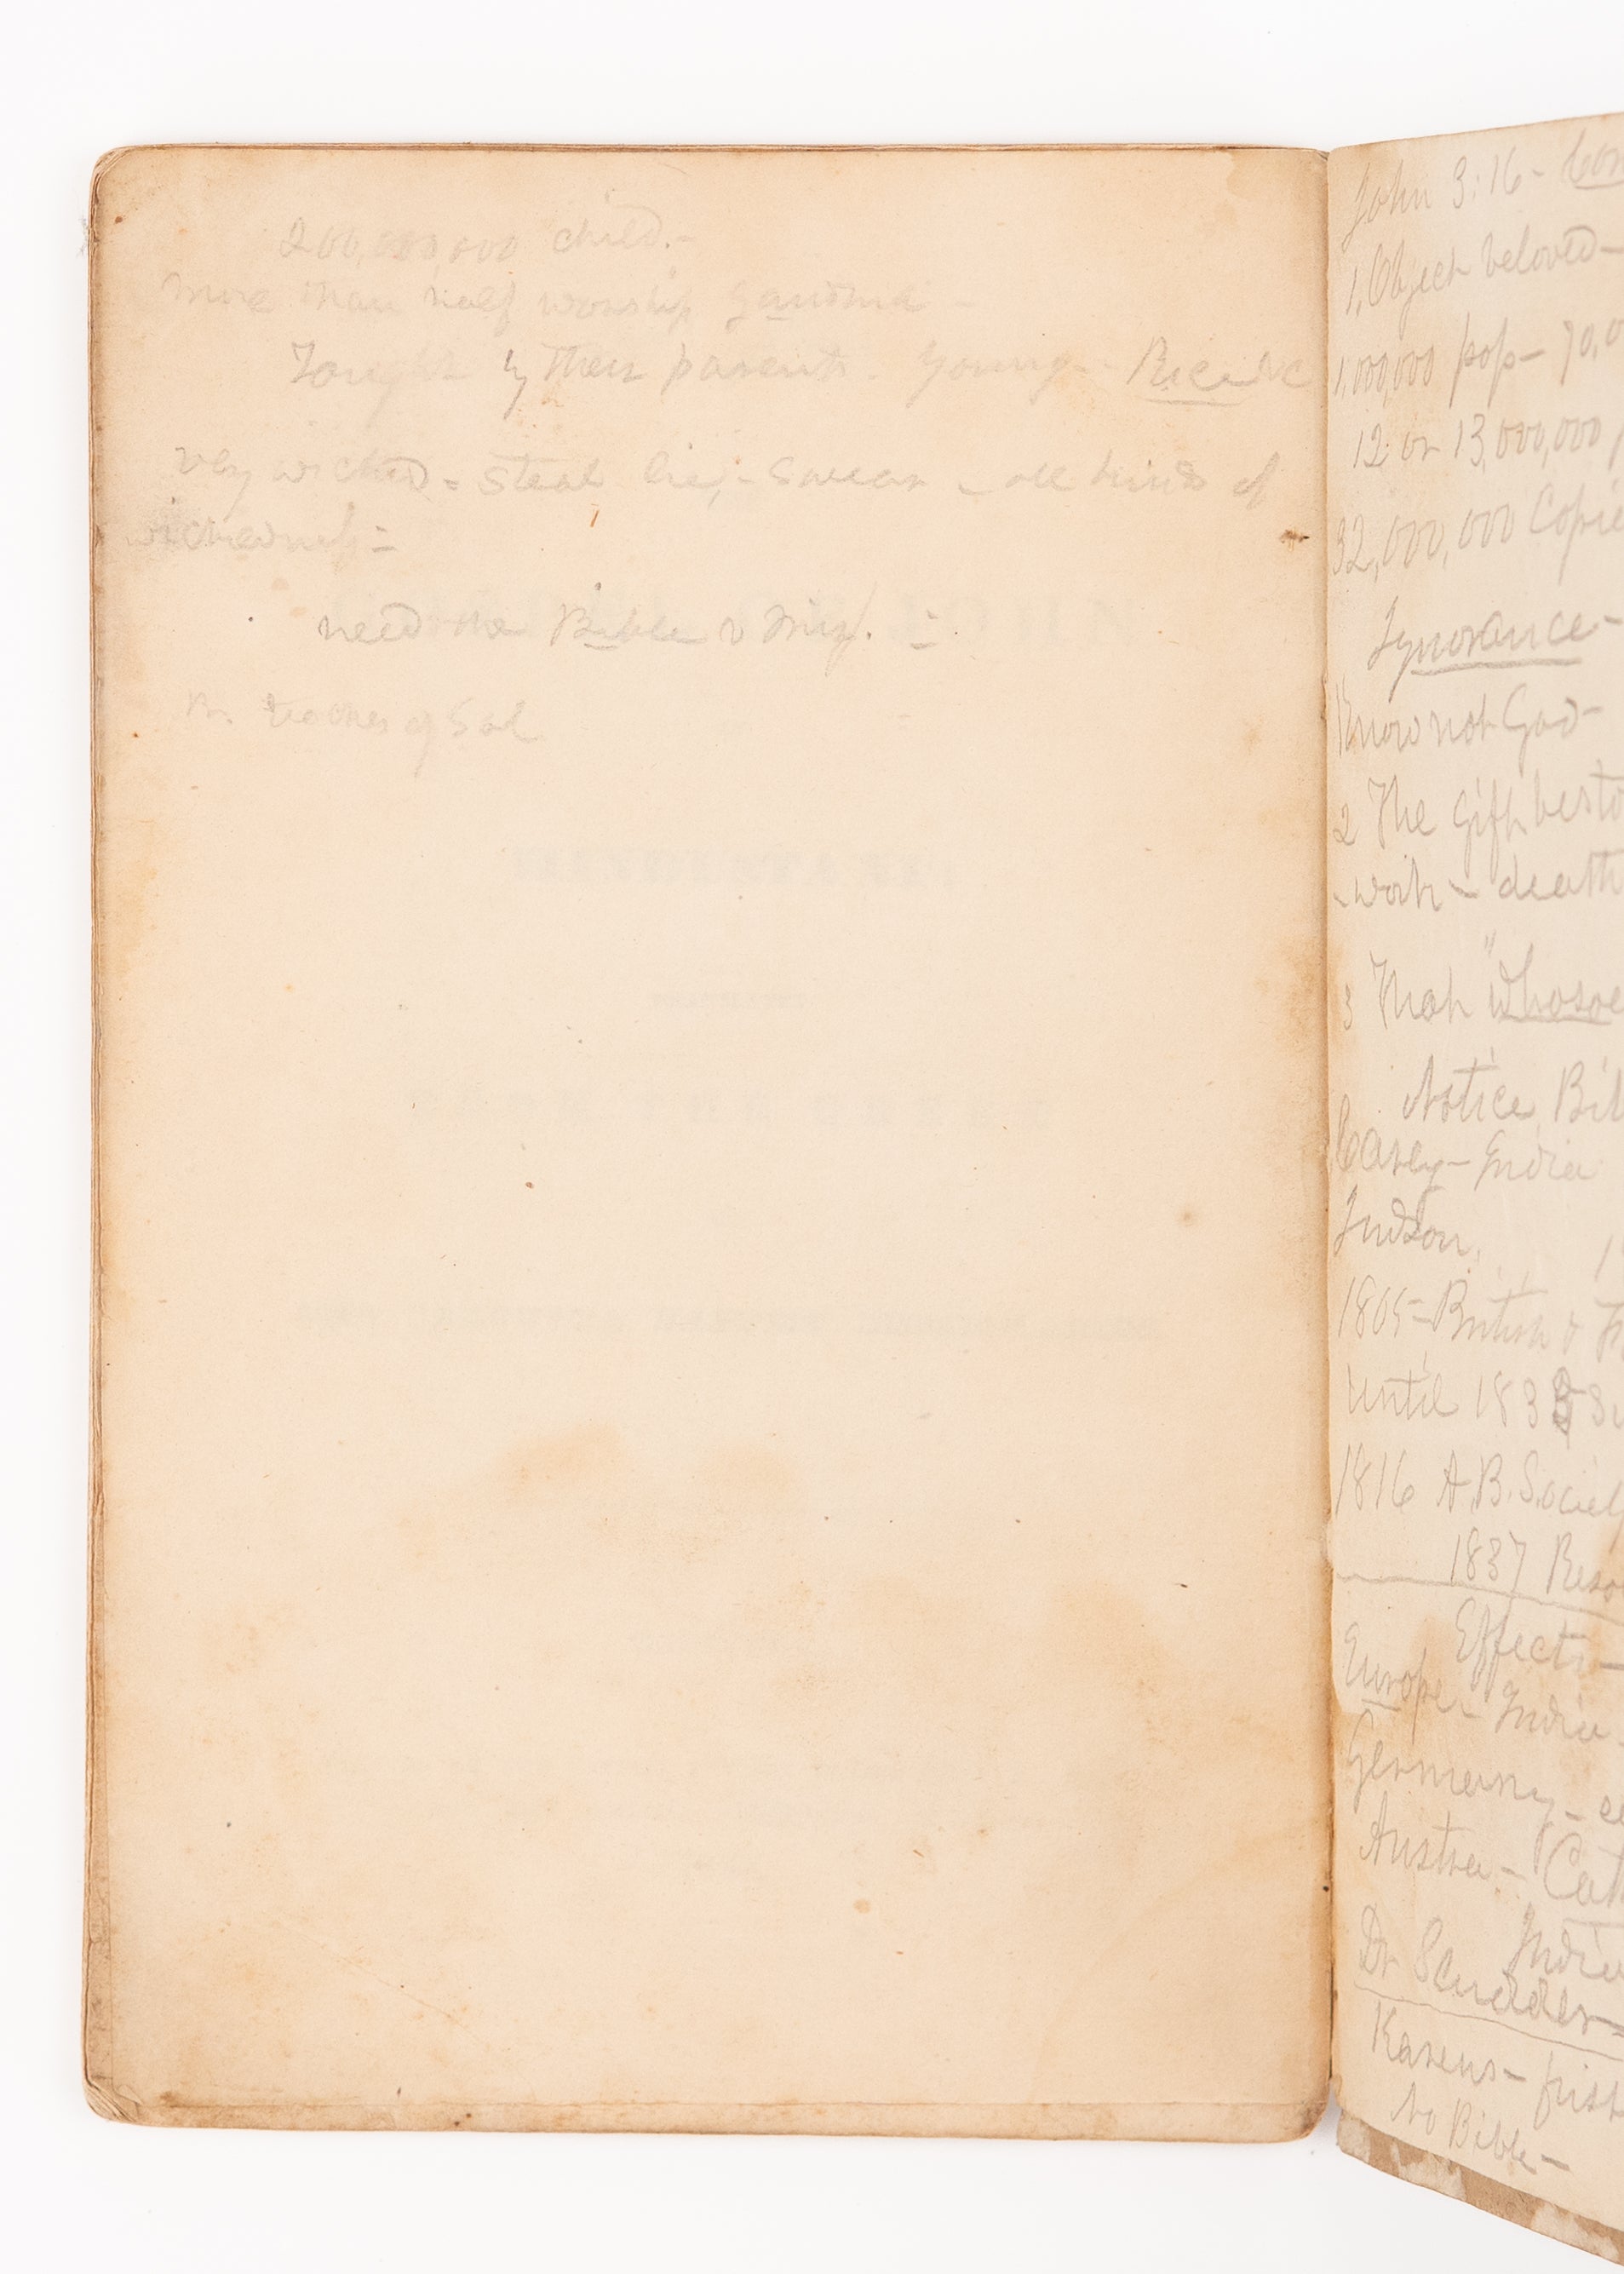 200,000,000 child.-
more than half worship Gaudma -
Taught by their parents. Young -
very wicked - steal lie, - swear - all kinds of
wickedness -
need the Bible & Misy. -
teacher of Sal
John 3:16 -
1, Object beloved -
1,000,000 pop - 70,0
12 or 13,000,000
32,000,000 Copie
Ignorance -
Know not God -
2 The Gift besto
- work - death
3 That "whosoe
Notice Bib
Carey - India
Judson,
1805 - British & Fo
Until 183
1816 A.B. Society
1837 Reso
Effects -
Europe - India -
Germany -
Austria - Cath
India
Dr Scudder -
Karens - first
No Bible -